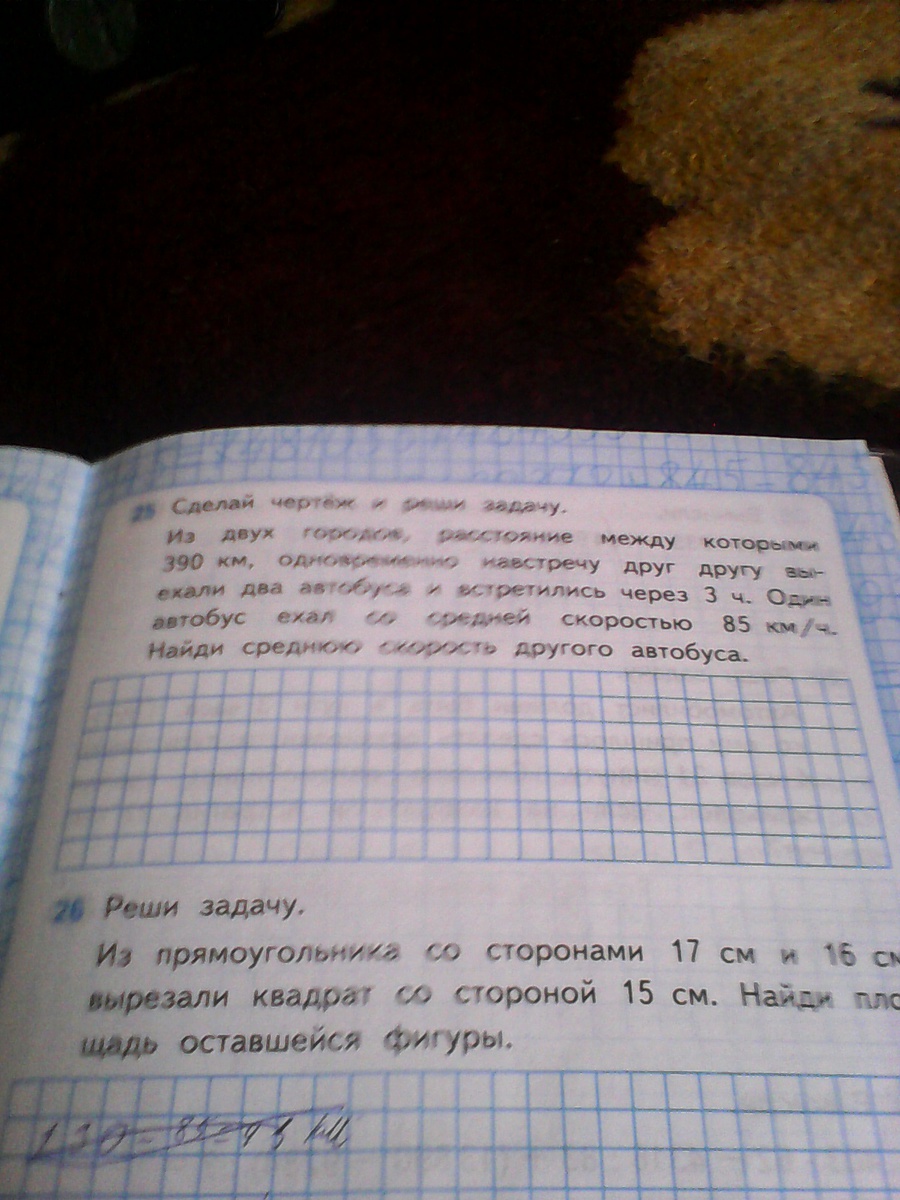 25 Сделай чертёж и реши задачу.
Из двух городов, расстояние между которыми
390 км, одновременно навстречу друг другу вы-
ехали два автобуса и встретились через 3 ч. Один
автобус ехал со средней скоростью 85 км/ч.
Найди среднюю скорость другого автобуса.
26 Реши задачу.
Из прямоугольника со сторонами 17 см и 16 см
вырезали квадрат со стороной 15 см. Найди пло
щадь оставшейся фигуры.